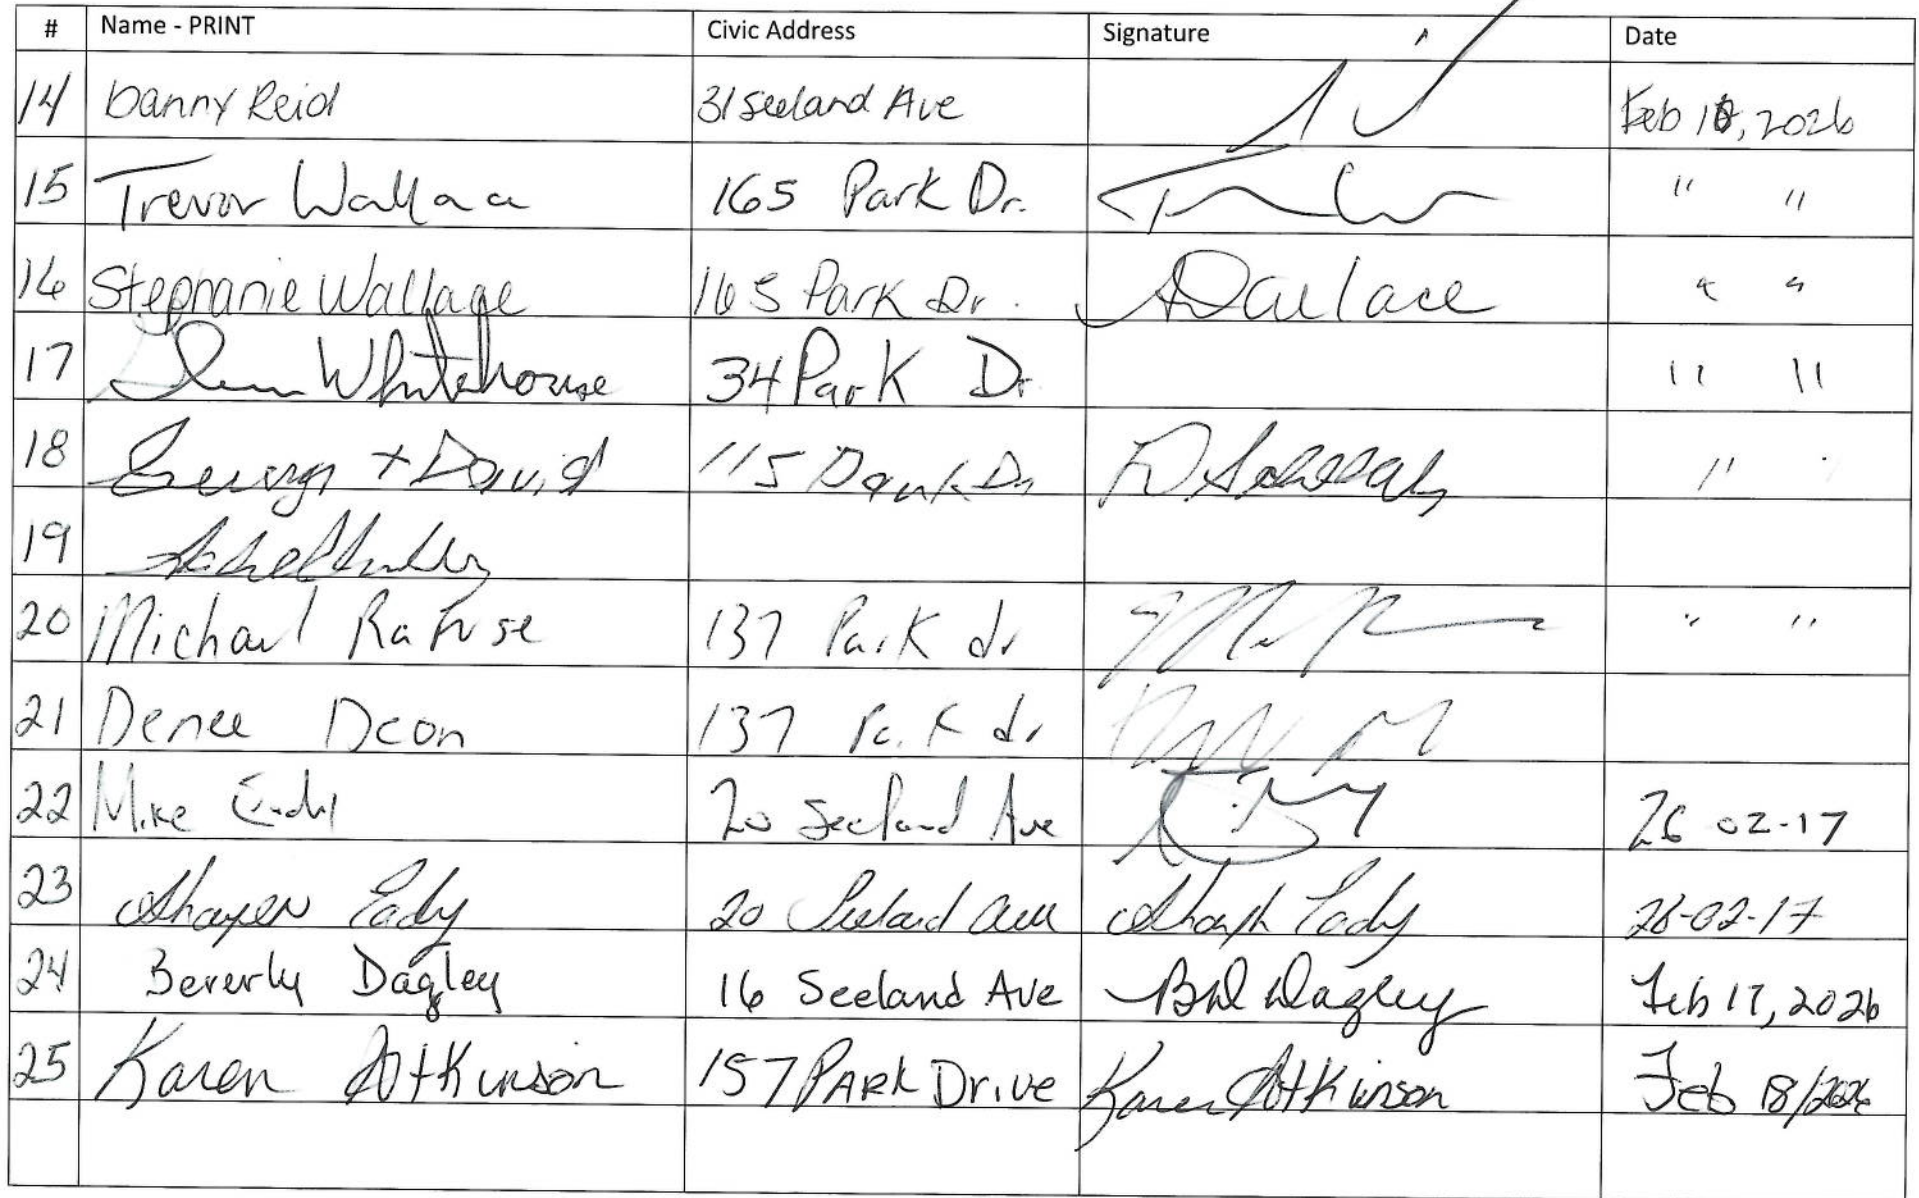 # Name - PRINT Civic Address Signature Date
14 Danny Reid 31 Seeland Ave Feb 18, 2026
15 Trevor Wallace 165 Park Dr. " "
16 Stephanie Wallace 165 Park Dr. Wallace " "
17 Whitehouse 34 Park Dr. " "
18 + David 115 Park Dr "
19
20 Michael Rafuse 137 Park dr " "
21 Denee Deon 137 Park dr
22 Mike Eady 20 Seeland Ave 26 02-17
23 Eady 20 Seeland Ave Eady 26-02-17
24 Beverly Dagley 16 Seeland Ave Dagley Feb 17, 2026
25 Karen Atkinson 157 PARK Drive Karen Atkinson Feb 18/2026